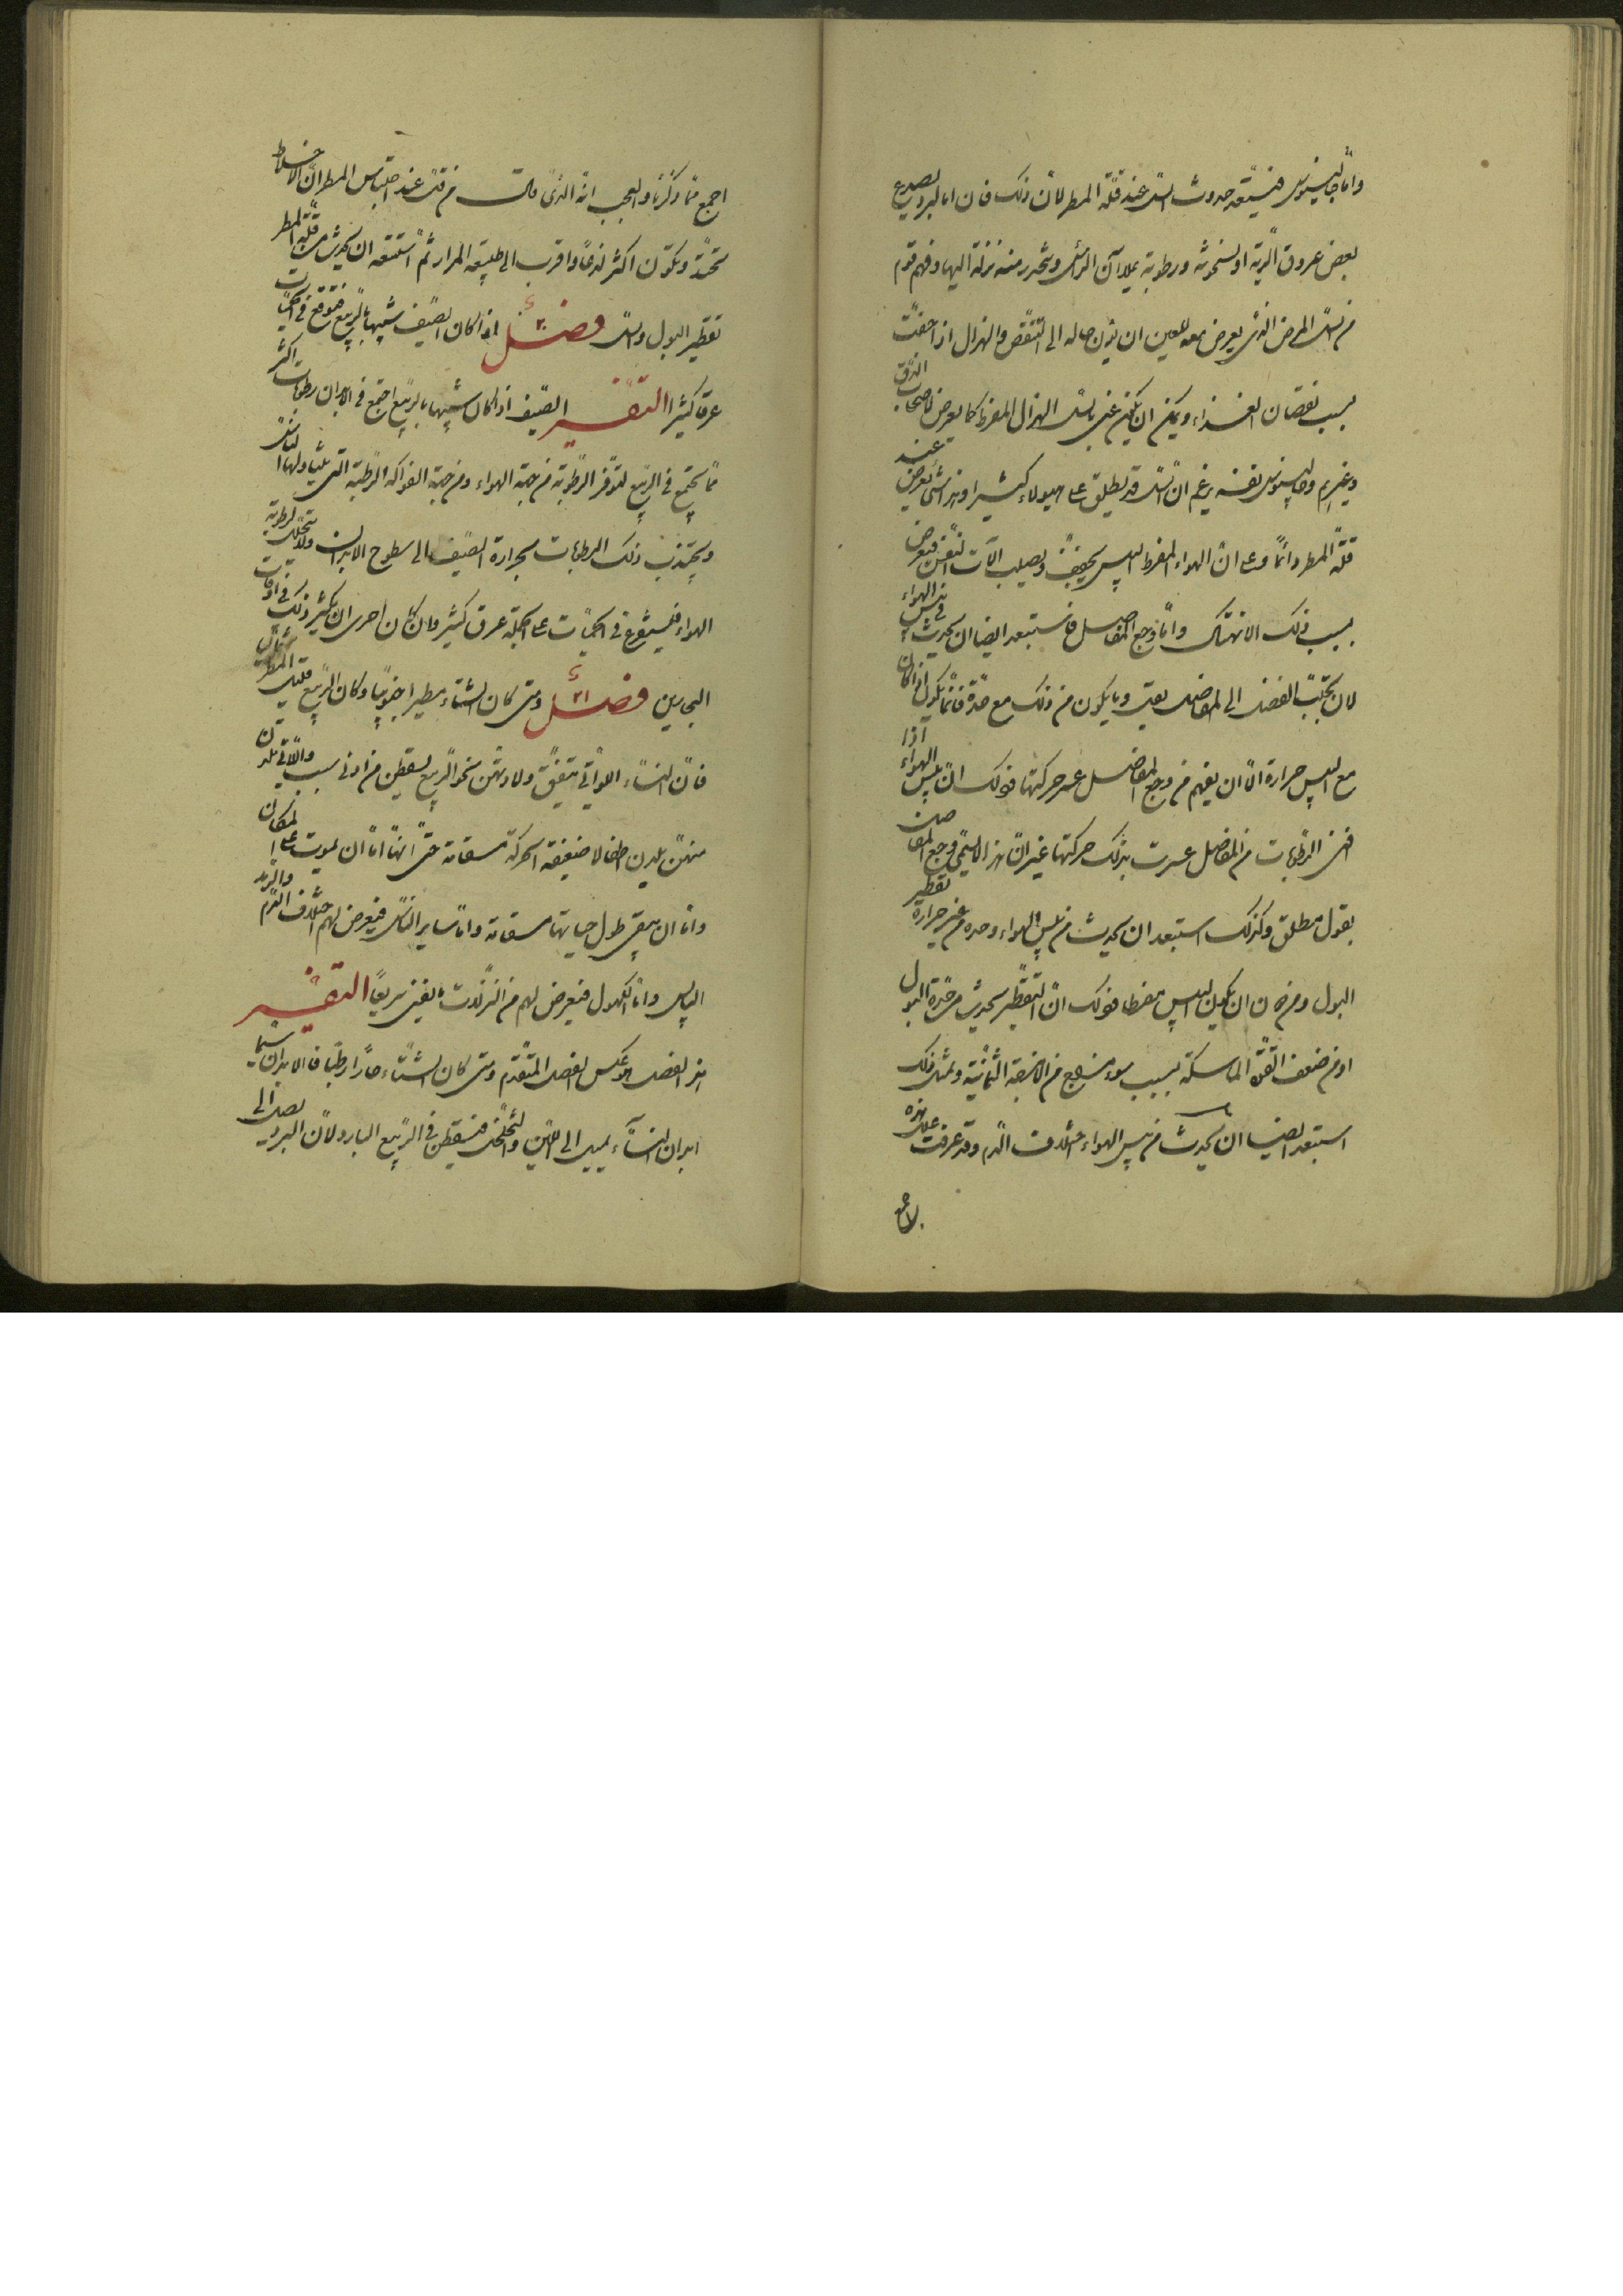 واما جالينوس فيستبعد حدوث السل عند قلة المطر لان ذلك فان اما لبرد يصدع
بعض عروق الرية او لسخونة ورطوبة يملآن الراس وتتحدر منه نزلة اليها وفهم قوم
من السل المرض الذى يعرض معه للعين ان يؤل حاله الى التنقص والهزال اذا جفت
بسبب نقصان الغذاء ويمكن ان يكون عنى بالسل الهزال المفرط كما يعرض لاصحاب الدق
وغيرهم وجالينوس نفسه يزعم ان السل قد يطلق على هولاء كثيرا وهذا شئ يعرض عند
قلة المطر دائما وعلى ان الهواء المفرط اليبس يجفف ويصلب الآت التنفس فيعرض
بسبب ذلك الانهتاك واما وجع المفاصل فاستبعد ايضا ان يحدث فى يبس الهواء
لان تجلب الفضل الى المفاصل وما يكون من ذلك مع حدة فانما يكون اذا كان
مع اليبس حرارة الا ان يفهم من وجع المفاصل عسر حركتها فذلك ان يبس الهواء اذا
افنى الرطوبات من المفاصل عسرت بذلك حركتها غير ان هذا لا يسمى وجع المفاصل
بقول مطلق وكذلك استبعد ان يحدث من يبس الهواء وحده من غير حرارة تقطير
البول ومن ان يكون اليبس مفرطا فذلك ان التقطير يحدث من حدة البول
او من ضعف القوة الماسكة بسبب سوء مزاج من الامزجة الثمانية وبمثل ذلك
استبعد ايضا ان يحدث من يبس الهواء اختلاف الدم وقد عرفت علل هذه
اجمع مما ذكرنا والعجب انه الذى قالت من قبل عند احتباس المطر ان الاخلاط
تحتد وتكون اكثر لذعا واقرب الى طبيعة المرار ثم استبعد ان يحدث من قلة المطر
تقطير البول والسل فصل ٢٠ اذا كان الصيف شبيها بالربيع فتوقع فى الحميات
عرقا كثيرا التفسير الصيف اذا كان شبيها بالربيع اجتمع فى الابدان رطوبات اكثر
مما يجتمع فى الربيع لتوفر الرطوبة من جهة الهواء ومن جهة الفواكه الرطبة التى يتناولها الناس
وتجتذب ذلك الرطوبات بحرارة الصيف الى سطوح الابدان ولا تتحلل لرطوبة
الهواء فيستفرغ فى الحميات على الجملة عرق كثير وان كان احرى ان يكثر ذلك فى اوقات
البحارين فصل ٢١ ومتى كان الشتاء مطيرا جنوبيا وكان الربيع قليل المطر شماليا
فان النساء اللواتى يتفق ولادتهن نحو الربيع يسقطن من ادنى سبب واللاتى يلدن
منهن يلدن اطفالا ضعيفة الحركة مسقامة حتى انها اما ان تموت على المكان
واما ان تبقى طول حياتها مسقامة واما ساير الناس فيعرض لهم اختلاف الدم والرمد
اليابس واما الكهول فيعرض لهم من النزلات ما يفنى سريعا التفسير
هذا الفصل هو عكس الفصل المتقدم ومتى كان الشتاء حارا رطبا فالابدان سيما
ابدان النساء يميل الى اللين والتخلخل فيسقطن فى الربيع البارد لان البرد يصل الى